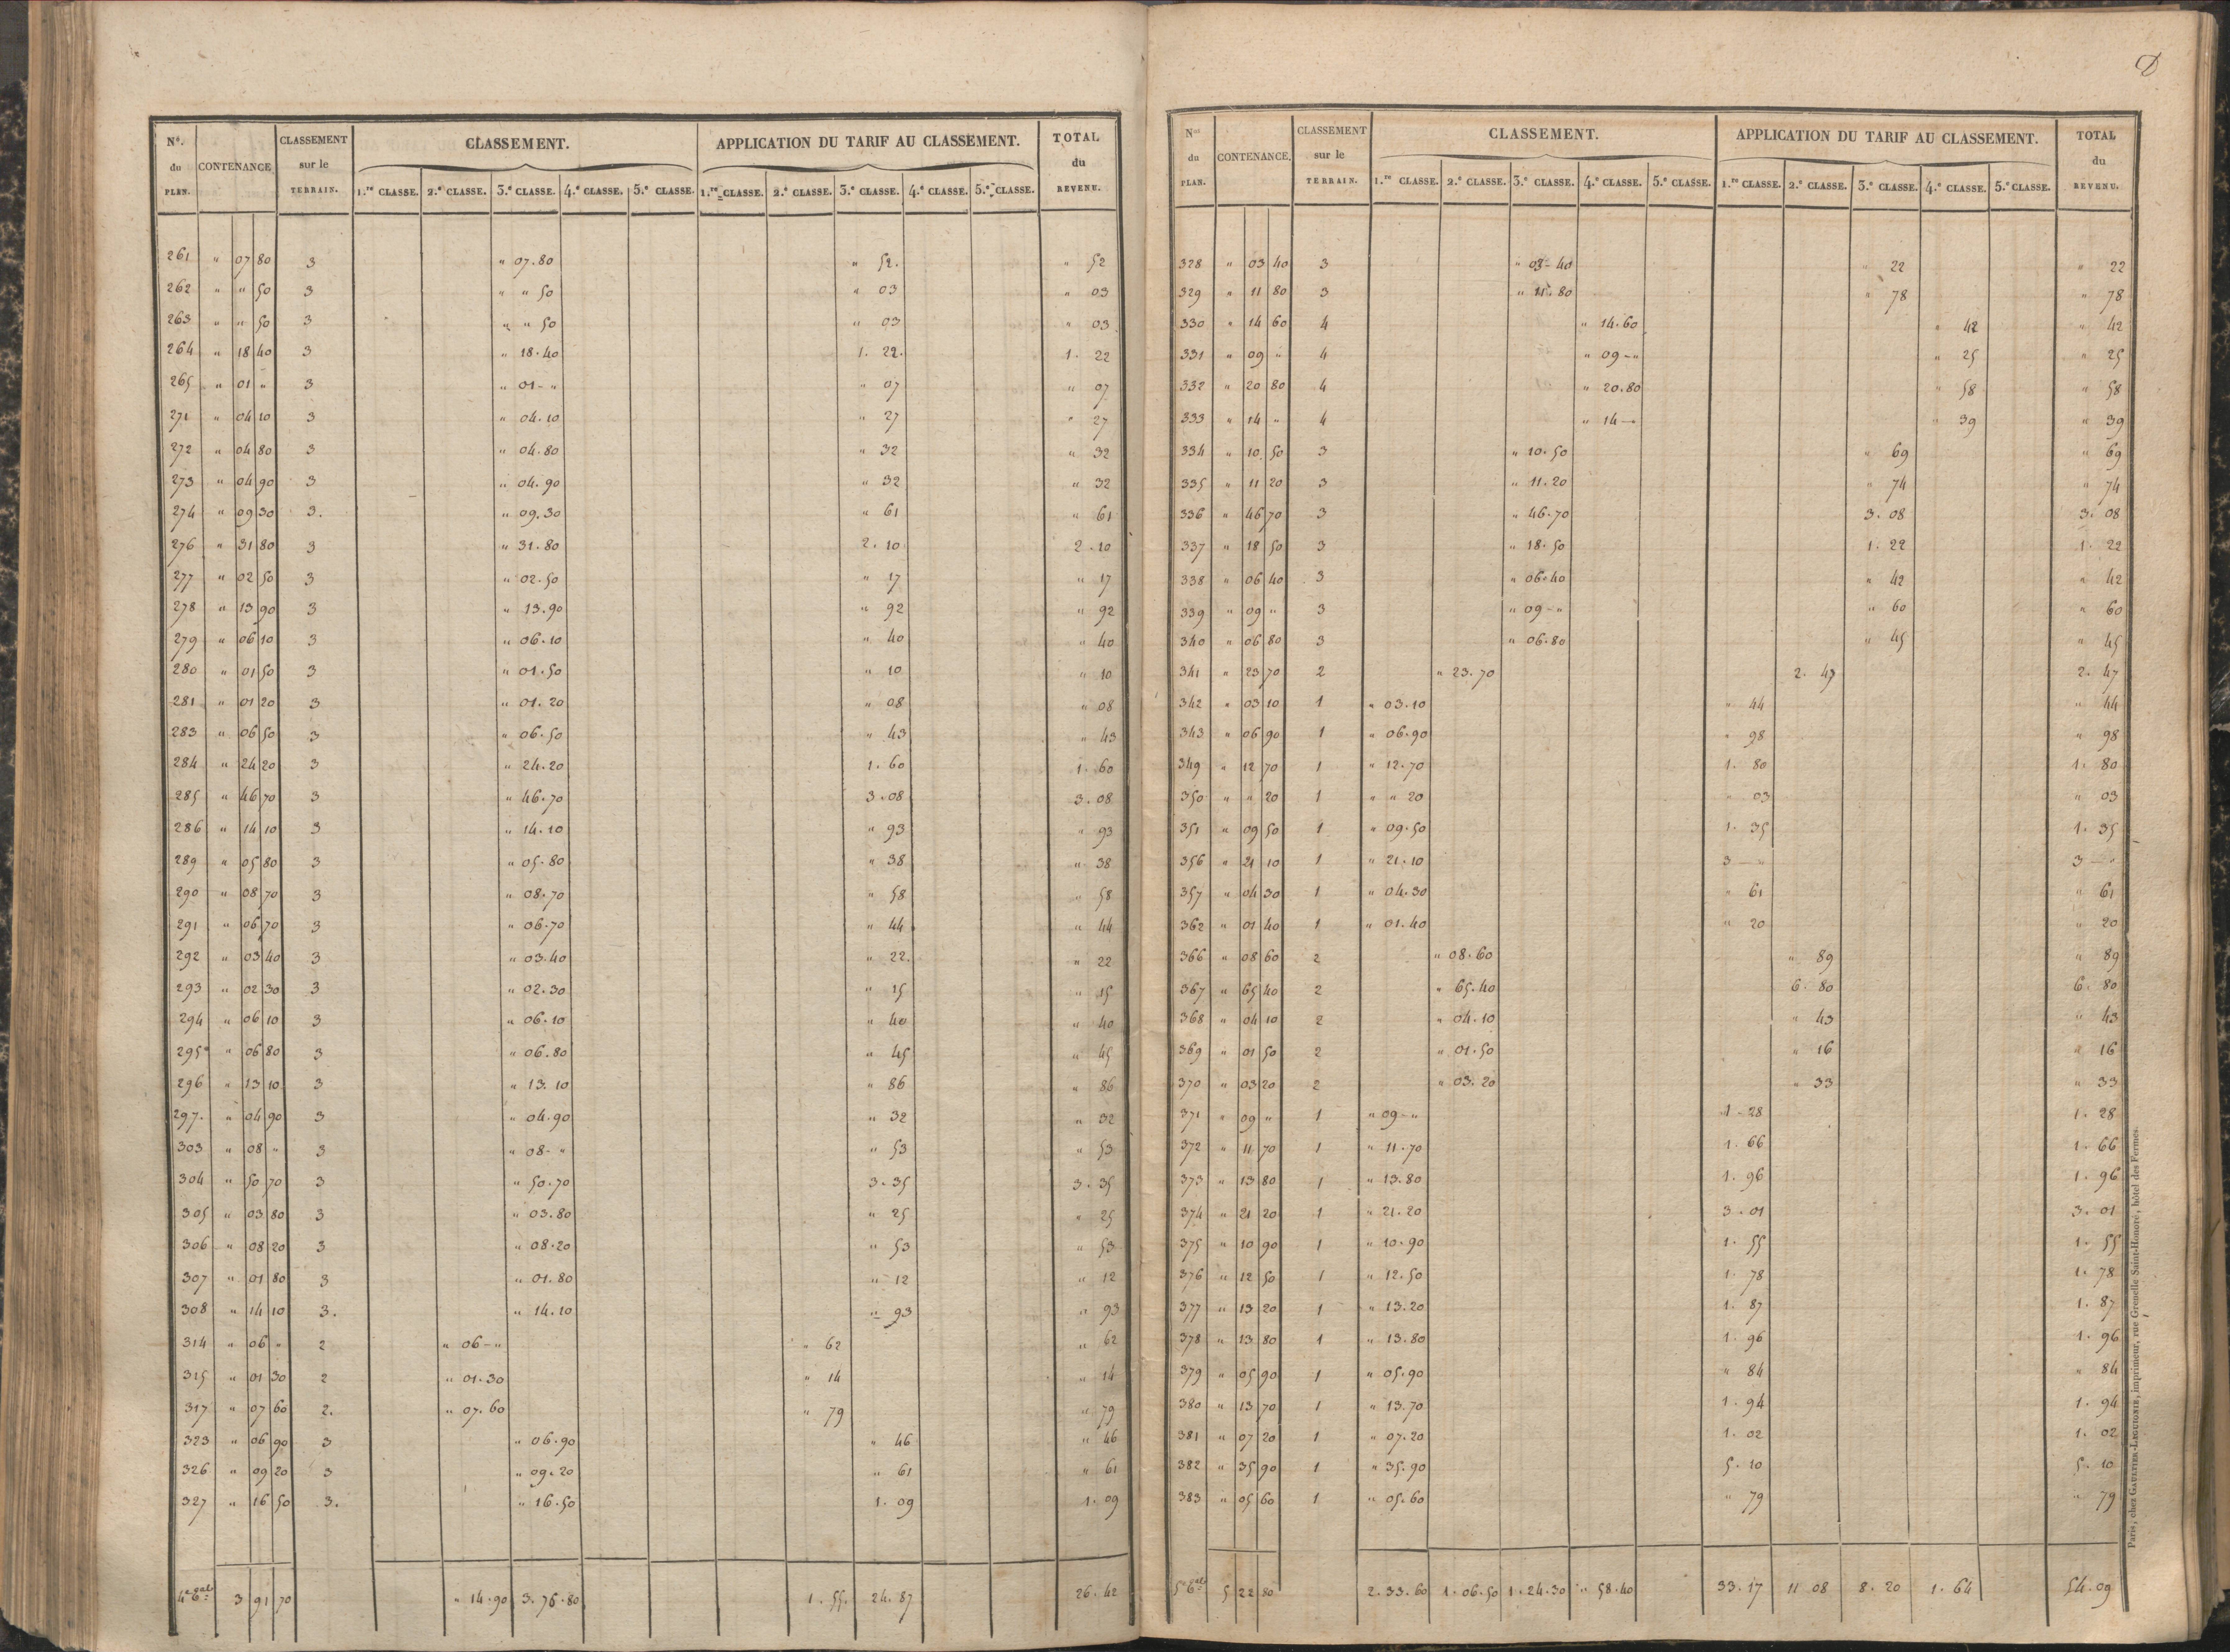 N.º CONTENANCE CLASSEMENT CLASSEMENT. APPLICATION DU TARIF AU CLASSEMENT. TOTAL
du sur le du
PLAN. TERRAIN. 1.re CLASSE. 2.e CLASSE. 3.e CLASSE. 4.e CLASSE. 5.e CLASSE. 1.re CLASSE. 2.e CLASSE. 3.e CLASSE. 4.e CLASSE. 5.e CLASSE. REVENU.
261 " 07 80 3 " 07.80 " 52. " 52
262 " " 50 3 " " 50 " 03 " 03
263 " " 50 3 " " 50 " 03 " 03
264 " 18 40 3 " 18.40 1. 22. 1. 22
265 " 01 " 3 " 01-" " 07 " 07
271 " 04 10 3 " 04.10 " 27 " 27
272 " 04 80 3 " 04.80 " 32 " 32
273 " 04 90 3 " 04.90 " 32 " 32
274 " 09 30 3. " 09.30 " 61 " 61
276 " 31 80 3 " 31.80 2. 10 2. 10
277 " 02 50 3 " 02.50 " 17 " 17
278 " 13 90 3 " 13.90 " 92 " 92
279 " 06 10 3 " 06.10 " 40 " 40
280 " 01 50 3 " 01.50 " 10 " 10
281 " 01 20 3 " 01.20 " 08 " 08
283 " 06 50 3 " 06.50 " 43 " 43
284 " 24 20 3 " 24.20 1. 60 1. 60
285 " 46 70 3 " 46.70 3. 08 3. 08
286 " 14 10 3 " 14.10 " 93 " 93
289 " 05 80 3 " 05.80 " 38 " 38
290 " 08 70 3 " 08.70 " 58 " 58
291 " 06 70 3 " 06.70 " 44 " 44
292 " 03 40 3 " 03.40 " 22. " 22
293 " 02 30 3 " 02.30 " 15 " 15
294 " 06 10 3 " 06.10 " 40 " 40
295 " 06 80 3 " 06.80 " 45 " 45
296 " 13 10 3 " 13.10 " 86 " 86
297. " 04 90 3 " 04.90 " 32 " 32
303 " 08 " 3 " 08-" " 53 " 53
304 " 50 70 3 " 50.70 3. 35 3. 35
305 " 03 80 3 " 03.80 " 25 " 25
306 " 08 20 3 " 08.20 " 53 " 53
307 " 01 80 3 " 01.80 " 12 " 12
308 " 14 10 3. " 14.10 " 93 " 93
314 " 06 " 2 " 06-" " 62 " 62
315 " 01 30 2 " 01.30 " 14 " 14
317 " 07 60 2. " 07.60 " 79 " 79
323 " 06 90 3 " 06.90 " 46 " 46
326 " 09 20 3 " 09.20 " 61 " 61
327 " 16 50 3. " 16.50 1. 09 1. 09
3 91 70 " 14.90 3.76.80 1. 55. 24. 87 26. 42
N.os CONTENANCE. CLASSEMENT CLASSEMENT. APPLICATION DU TARIF AU CLASSEMENT. TOTAL
du sur le du
PLAN. TERRAIN. 1.re CLASSE. 2.e CLASSE. 3.e CLASSE. 4.e CLASSE. 5.e CLASSE. 1.re CLASSE. 2.e CLASSE. 3.e CLASSE. 4.e CLASSE. 5.e CLASSE. REVENU.
328 " 03 40 3 " 03-40 " 22 " 22
329 " 11 80 3 " 11.80 " 78 " 78
330 " 14 60 4 " 14.60 " 42 " 42
331 " 09 " 4 " 09-" " 25 " 25
332 " 20 80 4 " 20.80 " 58 " 58
333 " 14 " 4 " 14-" " 39 " 39
334 " 10 50 3 " 10.50 " 69 " 69
335 " 11 20 3 " 11.20 " 74 " 74
336 " 46 70 3 " 46.70 3. 08 3. 08
337 " 18 50 3 " 18.50 1. 22 1. 22
338 " 06 40 3 " 06.40 " 42 " 42
339 " 09 " 3 " 09-" " 60 " 60
340 " 06 80 3 " 06.80 " 45 " 45
341 " 23 70 2 " 23.70 2. 47 2. 47
342 " 03 10 1 " 03.10 " 44 " 44
343 " 06 90 1 " 06.90 " 98 " 98
349 " 12 70 1 " 12.70 1. 80 1. 80
350 " " 20 1 " " 20 " 03 " 03
351 " 09 50 1 " 09.50 1. 35 1. 35
356 " 21 10 1 " 21.10 3 - " 3 - "
357 " 04 30 1 " 04.30 " 61 " 61
362 " 01 40 1 " 01.40 " 20 " 20
366 " 08 60 2 " 08.60 " 89 " 89
367 " 65 40 2 " 65.40 6. 80 6. 80
368 " 04 10 2 " 04.10 " 43 " 43
369 " 01 50 2 " 01.50 " 16 " 16
370 " 03 20 2 " 03.20 " 33 " 33
371 " 09 " 1 " 09-" 1-28 1. 28
372 " 11 70 1 " 11.70 1. 66 1. 66
373 " 13 80 1 " 13.80 1. 96 1. 96
374 " 21 20 1 " 21.20 3. 01 3. 01
375 " 10 90 1 " 10.90 1. 55 1. 55
376 " 12 50 1 " 12.50 1. 78 1. 78
377 " 13 20 1 " 13.20 1. 87 1. 87
378 " 13 80 1 " 13.80 1. 96 1. 96
379 " 05 90 1 " 05.90 " 84 " 84
380 " 13 70 1 " 13.70 1. 94 1. 94
381 " 07 20 1 " 07.20 1. 02 1. 02
382 " 35 90 1 " 35.90 5. 10 5. 10
383 " 05 60 1 " 05.60 " 79 " 79
5 22 80 2.33.60 1.06.50 1.24.30 " 58.40 33.17 11 08 8. 20 1. 64 54.09
Paris, chez GAULTIER-LAGUIONIE, imprimeur, rue Grenelle-Saint-Honoré, hôtel des Fermes.